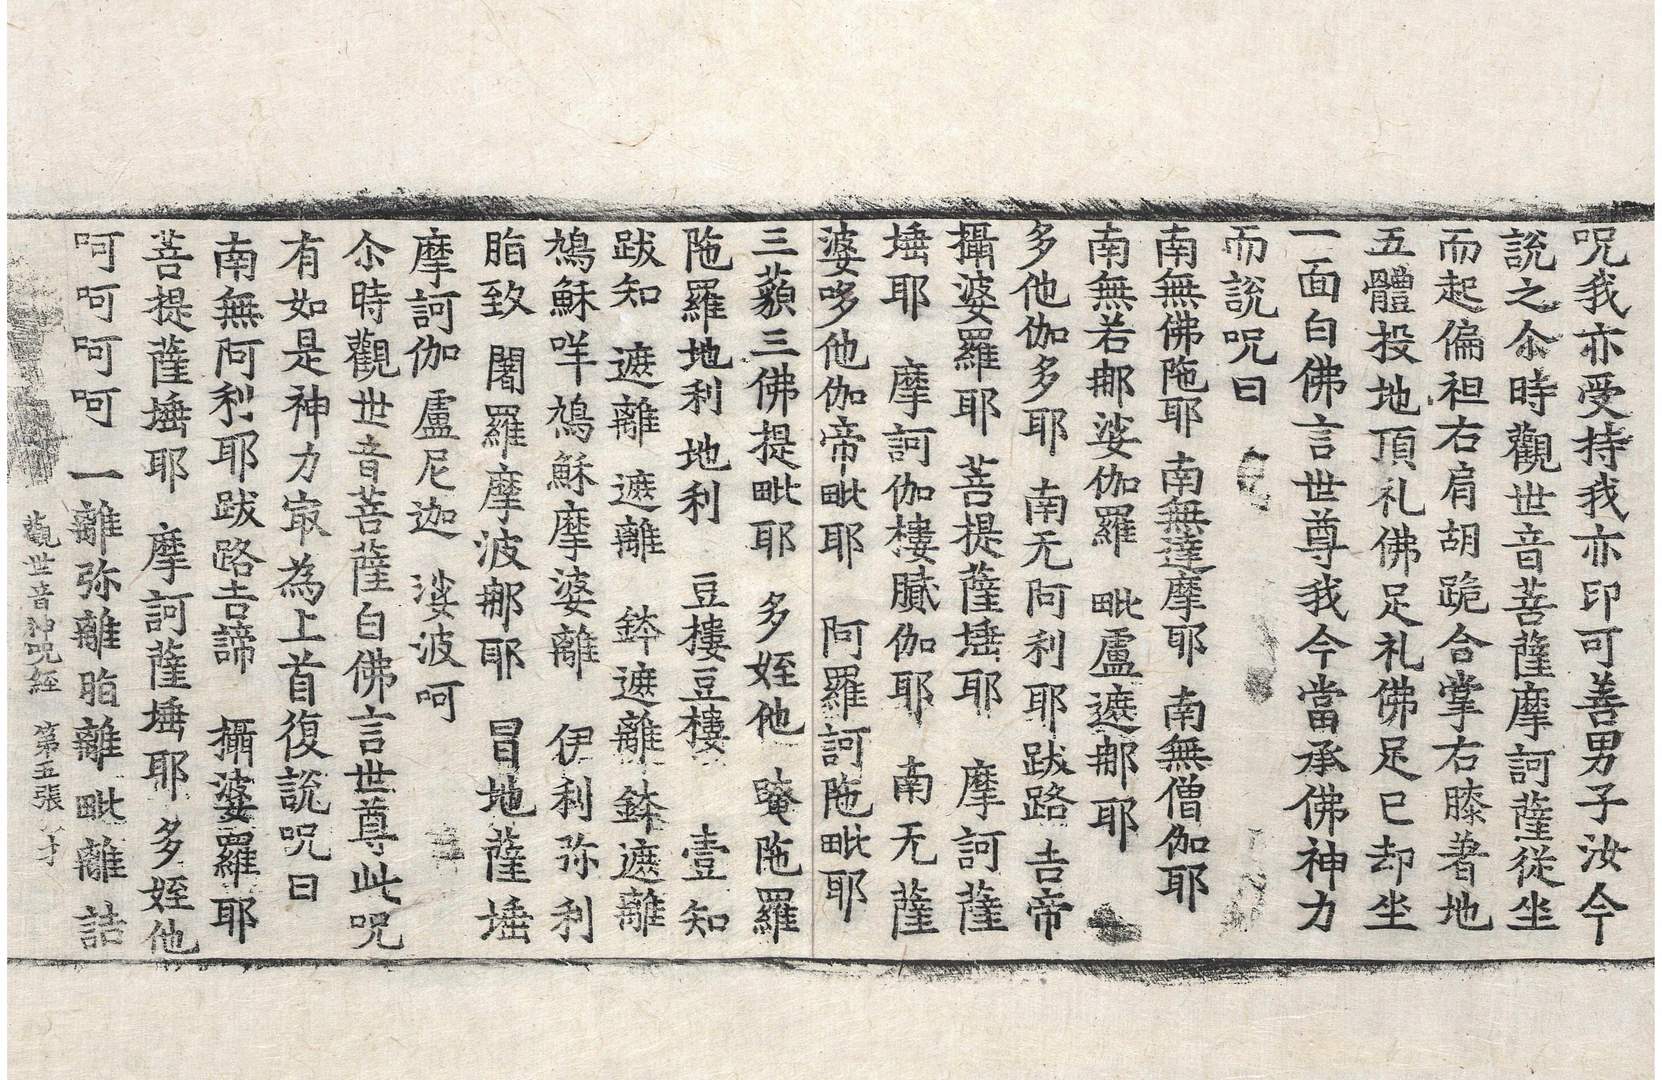 呪我亦受持我亦印可善男子汝今
說之尒時觀世音菩薩摩訶薩從坐
而起偏袒右肩胡跪合掌右膝著地
五體投地頂礼佛足礼佛足已却坐
一面白佛言世尊我今當承佛神力
而說呪曰
南無佛陁耶 南無達摩耶 南無僧伽耶
南無若郍娑伽羅 毗盧遮郍耶
多他伽多耶 南无阿利耶跋路吉帝
攝婆羅耶 菩提薩埵耶 摩訶薩
埵耶 摩訶伽樓膩伽耶 南无薩
婆哆他伽帝毗耶 阿羅訶陁毗耶
三藐三佛提毗耶 多姪他 唵陁羅
陁羅地利 地利 豆樓豆樓 壹知
跋知 遮離 遮離 鉢遮離 鉢遮離
鳩穌咩鳩穌摩婆離 伊利弥利
脂致 闍羅摩波郍耶 冒地薩埵
摩訶伽 盧尼迦 娑波呵
尒時觀世音菩薩白佛言世尊此呪
有如是神力㝡為上首復說呪曰
南無阿利耶跋路吉諦 攝婆羅耶
菩提薩埵耶 摩訶薩埵耶 多姪他
呵呵呵呵 一離弥離脂離毗離 詰
觀世音神呪経 第五張 才